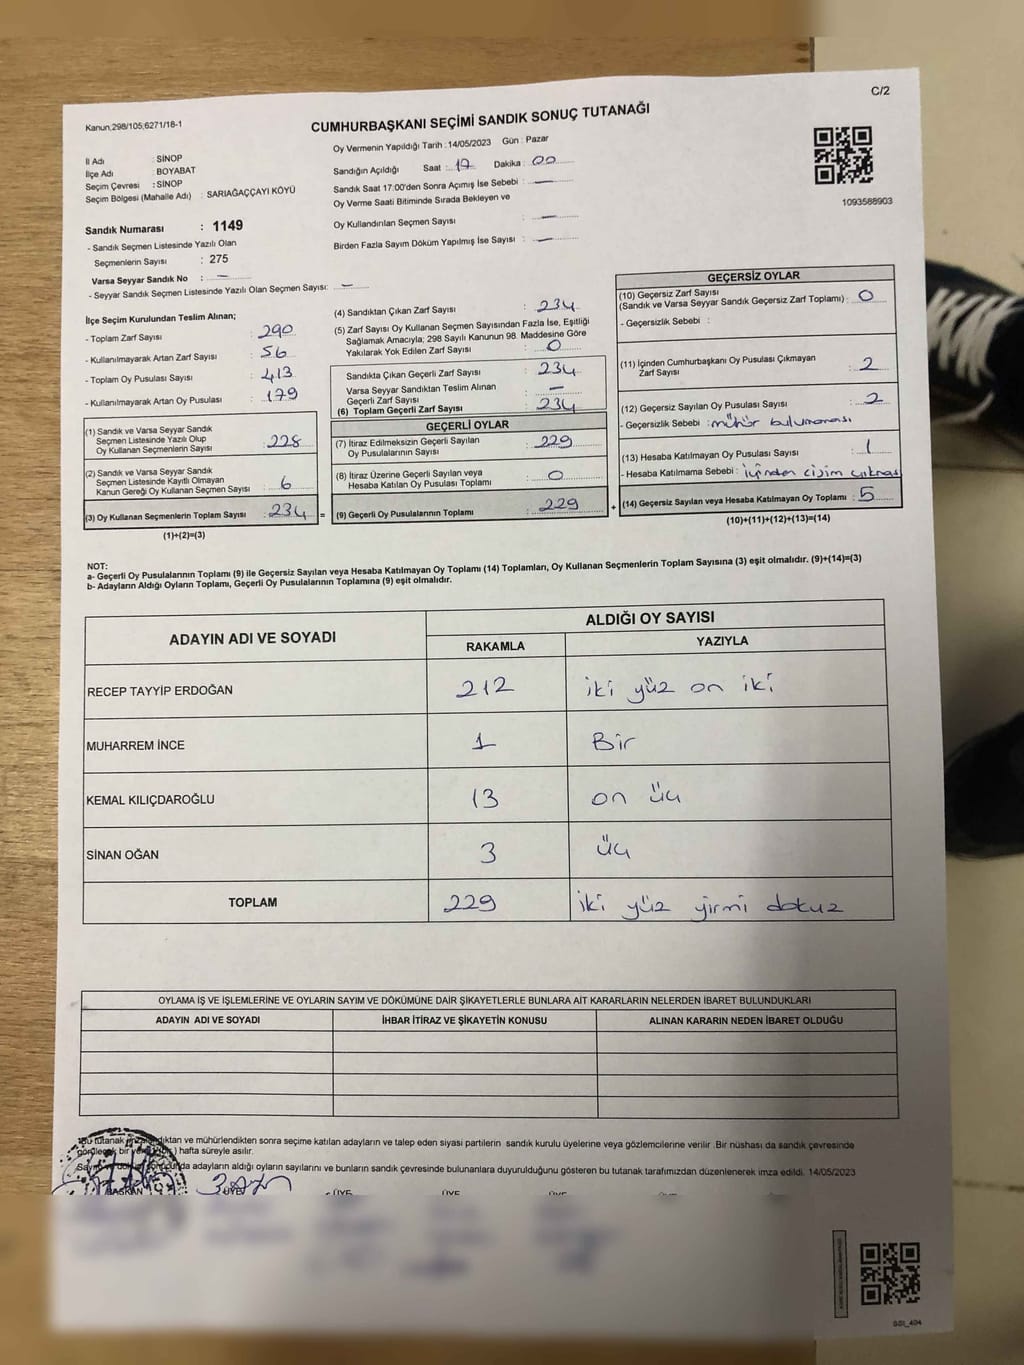 C/2
Kanun,298/105;6271/18-1
CUMHURBAŞKANI SEÇİMİ SANDIK SONUÇ TUTANAĞI
İl Adı : SİNOP
İlçe Adı : BOYABAT
Seçim Çevresi : SİNOP
Seçim Bölgesi (Mahalle Adı) : SARIAĞAÇÇAYI KÖYÜ
Sandık Numarası : 1149
- Sandık Seçmen Listesinde Yazılı Olan
Seçmenlerin Sayısı : 275
Varsa Seyyar Sandık No : —
- Seyyar Sandık Seçmen Listesinde Yazılı Olan Seçmen Sayısı: —
Oy Vermenin Yapıldığı Tarih : 14/05/2023 Gün : Pazar
Sandığın Açıldığı Saat : 17 Dakika : 00
Sandık Saat 17:00'den Sonra Açımış İse Sebebi : —
Oy Verme Saati Bitiminde Sırada Bekleyen ve
Oy Kullandırılan Seçmen Sayısı : —
Birden Fazla Sayım Döküm Yapılmış İse Sayısı : —
1093588903
İlçe Seçim Kurulundan Teslim Alınan;
- Toplam Zarf Sayısı : 290
- Kullanılmayarak Artan Zarf Sayısı : 56
- Toplam Oy Pusulası Sayısı : 413
- Kullanılmayarak Artan Oy Pusulası : 179
(1) Sandık ve Varsa Seyyar Sandık
Seçmen Listesinde Yazılı Olup
Oy Kullanan Seçmenlerin Sayısı : 228
(2) Sandık ve Varsa Seyyar Sandık
Seçmen Listesinde Kayıtlı Olmayan
Kanun Gereği Oy Kullanan Seçmen Sayısı : 6
(3) Oy Kullanan Seçmenlerin Toplam Sayısı : 234 =
(1)+(2)=(3)
(4) Sandıktan Çıkan Zarf Sayısı : 234
(5) Zarf Sayısı Oy Kullanan Seçmen Sayısından Fazla İse, Eşitliği
Sağlamak Amacıyla; 298 Sayılı Kanunun 98. Maddesine Göre
Yakılarak Yok Edilen Zarf Sayısı : 0
Sandıkta Çıkan Geçerli Zarf Sayısı : 234
Varsa Seyyar Sandıktan Teslim Alınan
Geçerli Zarf Sayısı : —
(6) Toplam Geçerli Zarf Sayısı : 234
GEÇERLİ OYLAR
(7) İtiraz Edilmeksizin Geçerli Sayılan
Oy Pusulalarının Sayısı : 229
(8) İtiraz Üzerine Geçerli Sayılan veya
Hesaba Katılan Oy Pusulası Toplamı : 0
(9) Geçerli Oy Pusulalarının Toplamı : 229 +
GEÇERSİZ OYLAR
(10) Geçersiz Zarf Sayısı
(Sandık ve Varsa Seyyar Sandık Geçersiz Zarf Toplamı) : 0
- Geçersizlik Sebebi :
(11) İçinden Cumhurbaşkanı Oy Pusulası Çıkmayan
Zarf Sayısı : 2
(12) Geçersiz Sayılan Oy Pusulası Sayısı : 2
- Geçersizlik Sebebi : mühür bulunmaması
(13) Hesaba Katılmayan Oy Pusulası Sayısı : 1
- Hesaba Katılmama Sebebi : içinden cisim çıkması
(14) Geçersiz Sayılan veya Hesaba Katılmayan Oy Toplamı : 5
(10)+(11)+(12)+(13)=(14)
NOT:
a- Geçerli Oy Pusulalarının Toplamı (9) ile Geçersiz Sayılan veya Hesaba Katılmayan Oy Toplamı (14) Toplamları, Oy Kullanan Seçmenlerin Toplam Sayısına (3) eşit olmalıdır. (9)+(14)=(3)
b- Adayların Aldığı Oyların Toplamı, Geçerli Oy Pusulalarının Toplamına (9) eşit olmalıdır.
ADAYIN ADI VE SOYADI
ALDIĞI OY SAYISI
RAKAMLA YAZIYLA
RECEP TAYYİP ERDOĞAN 212 iki yüz on iki
MUHARREM İNCE 1 Bir
KEMAL KILIÇDAROĞLU 13 on üç
SİNAN OĞAN 3 üç
TOPLAM 229 iki yüz yirmi dokuz
OYLAMA İŞ VE İŞLEMLERİNE VE OYLARIN SAYIM VE DÖKÜMÜNE DAİR ŞİKAYETLERLE BUNLARA AİT KARARLARIN NELERDEN İBARET BULUNDUKLARI
ADAYIN ADI VE SOYADI İHBAR İTİRAZ VE ŞİKAYETİN KONUSU ALINAN KARARIN NEDEN İBARET OLDUĞU
Bu tutanak ve mühürlendikten sonra seçime katılan adayların ve talep eden siyasi partilerin sandık kurulu üyelerine veya gözlemcilerine verilir .Bir nüshası da sandık çevresinde
bir hafta süreyle asılır.
adayların aldığı oyların sayılarını ve bunların sandık çevresinde bulunanlara duyurulduğunu gösteren bu tutanak tarafımızdan düzenlenerek imza edildi. 14/05/2023
BAŞKAN ÜYE ÜYE ÜYE ÜYE